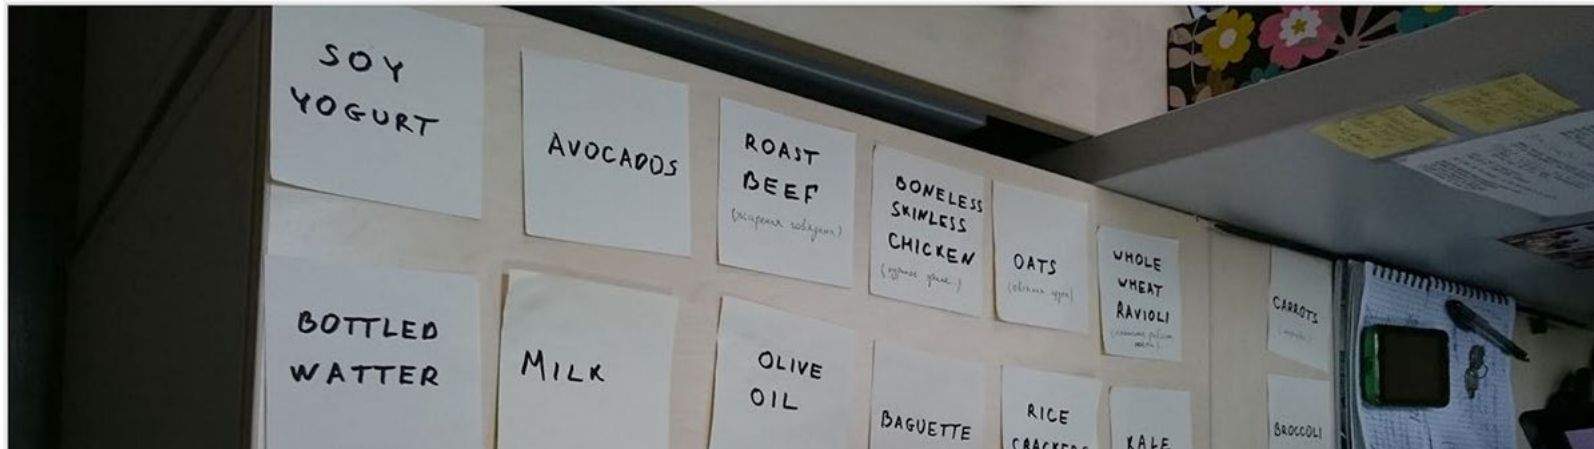 SOY
YOGURT
AVOCADOS
ROAST
BEEF
(жареная говядина)
BONELESS
SKINLESS
CHICKEN
OATS
WHOLE
WHEAT
RAVIOLI
CARROTS
BOTTLED
WATTER
MILK
OLIVE
OIL
BAGUETTE
RICE
CRACKERS
KALE
BROCCOLI